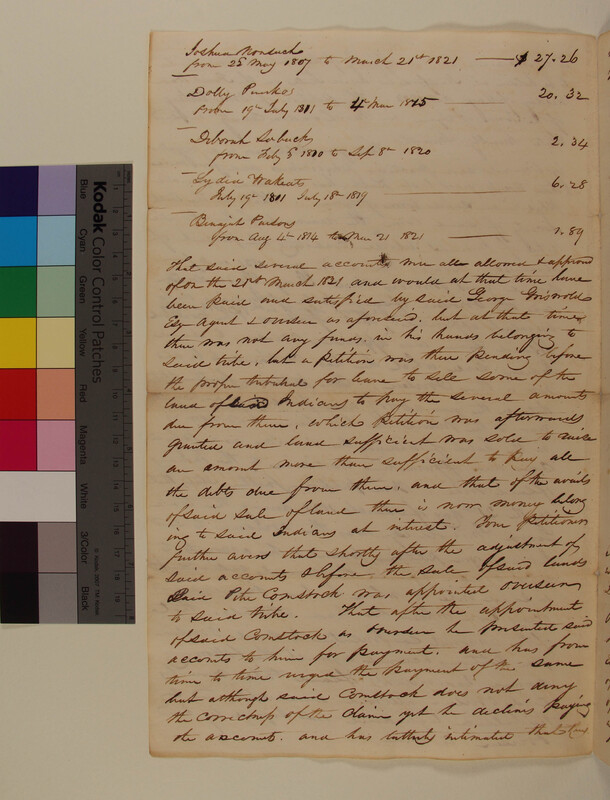 Joshua Nonsuch
from 25 May 1807 to March 21st 1821 — $ 27.26
Dolly
From 19th July 1811 to 4th Mar 1815 — 20.32
Deborah
from Feby 5th 1810 to Sep 8th 1820 2.34
Lydia Wakeats
July 19th 1811 July 18th 1819 — 6.28
Benajah Parsons
from Aug 4th 1814 to Mar 21 1821 — 1.89
That said several accounts were all allowed & approved
of on the 25th March 1821 and would at that time have
been paid and satisfied by said George Griswold
Esq Agent & overseer as aforesaid, but at that time
there was not any funds in his hands belonging to
said tribe, but a Petition was then pending before
the proper tribunal for leave to sell some of the
land of said Indians to pay the several amounts
due from them, which Petition was afterwards
granted and land sufficient was sold to raise
an amount more than sufficient to pay all
the debts due from them, and that of the avails
of said sale of land there is now money belong
ing to said Indians at interest. Your Petitioner
further avers that shortly after the adjustment of
said accounts & before the sale of said lands
said Peter Comstock was appointed overseer
to said tribe. That after the appointment
of said Comstock as overseer he presented said
accounts to him for payment, and has from
time to time urged the payment of the same
but although said Comstock does not deny
the correctness of the claim yet he declines paying
the accounts, and has latterly intimated that